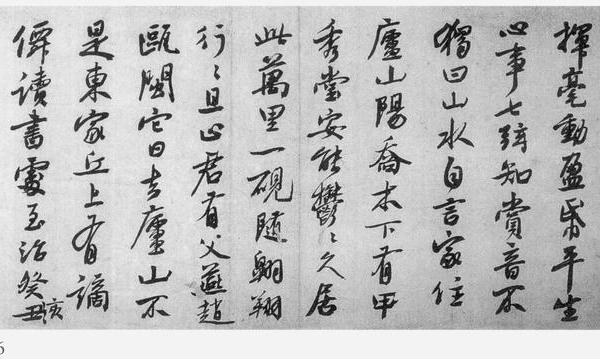 揮毫動盈帋平生
心事七弦知賞音不
獨曰山水自言家住
廬山陽喬木下有甲
秀堂安能鬱〻久居
此萬里一硯隨翱翔
行〻且止君有父燕趙
甌閩它日去廬山不
是東家丘上有謫
僊讀書處至治癸丑亥
6